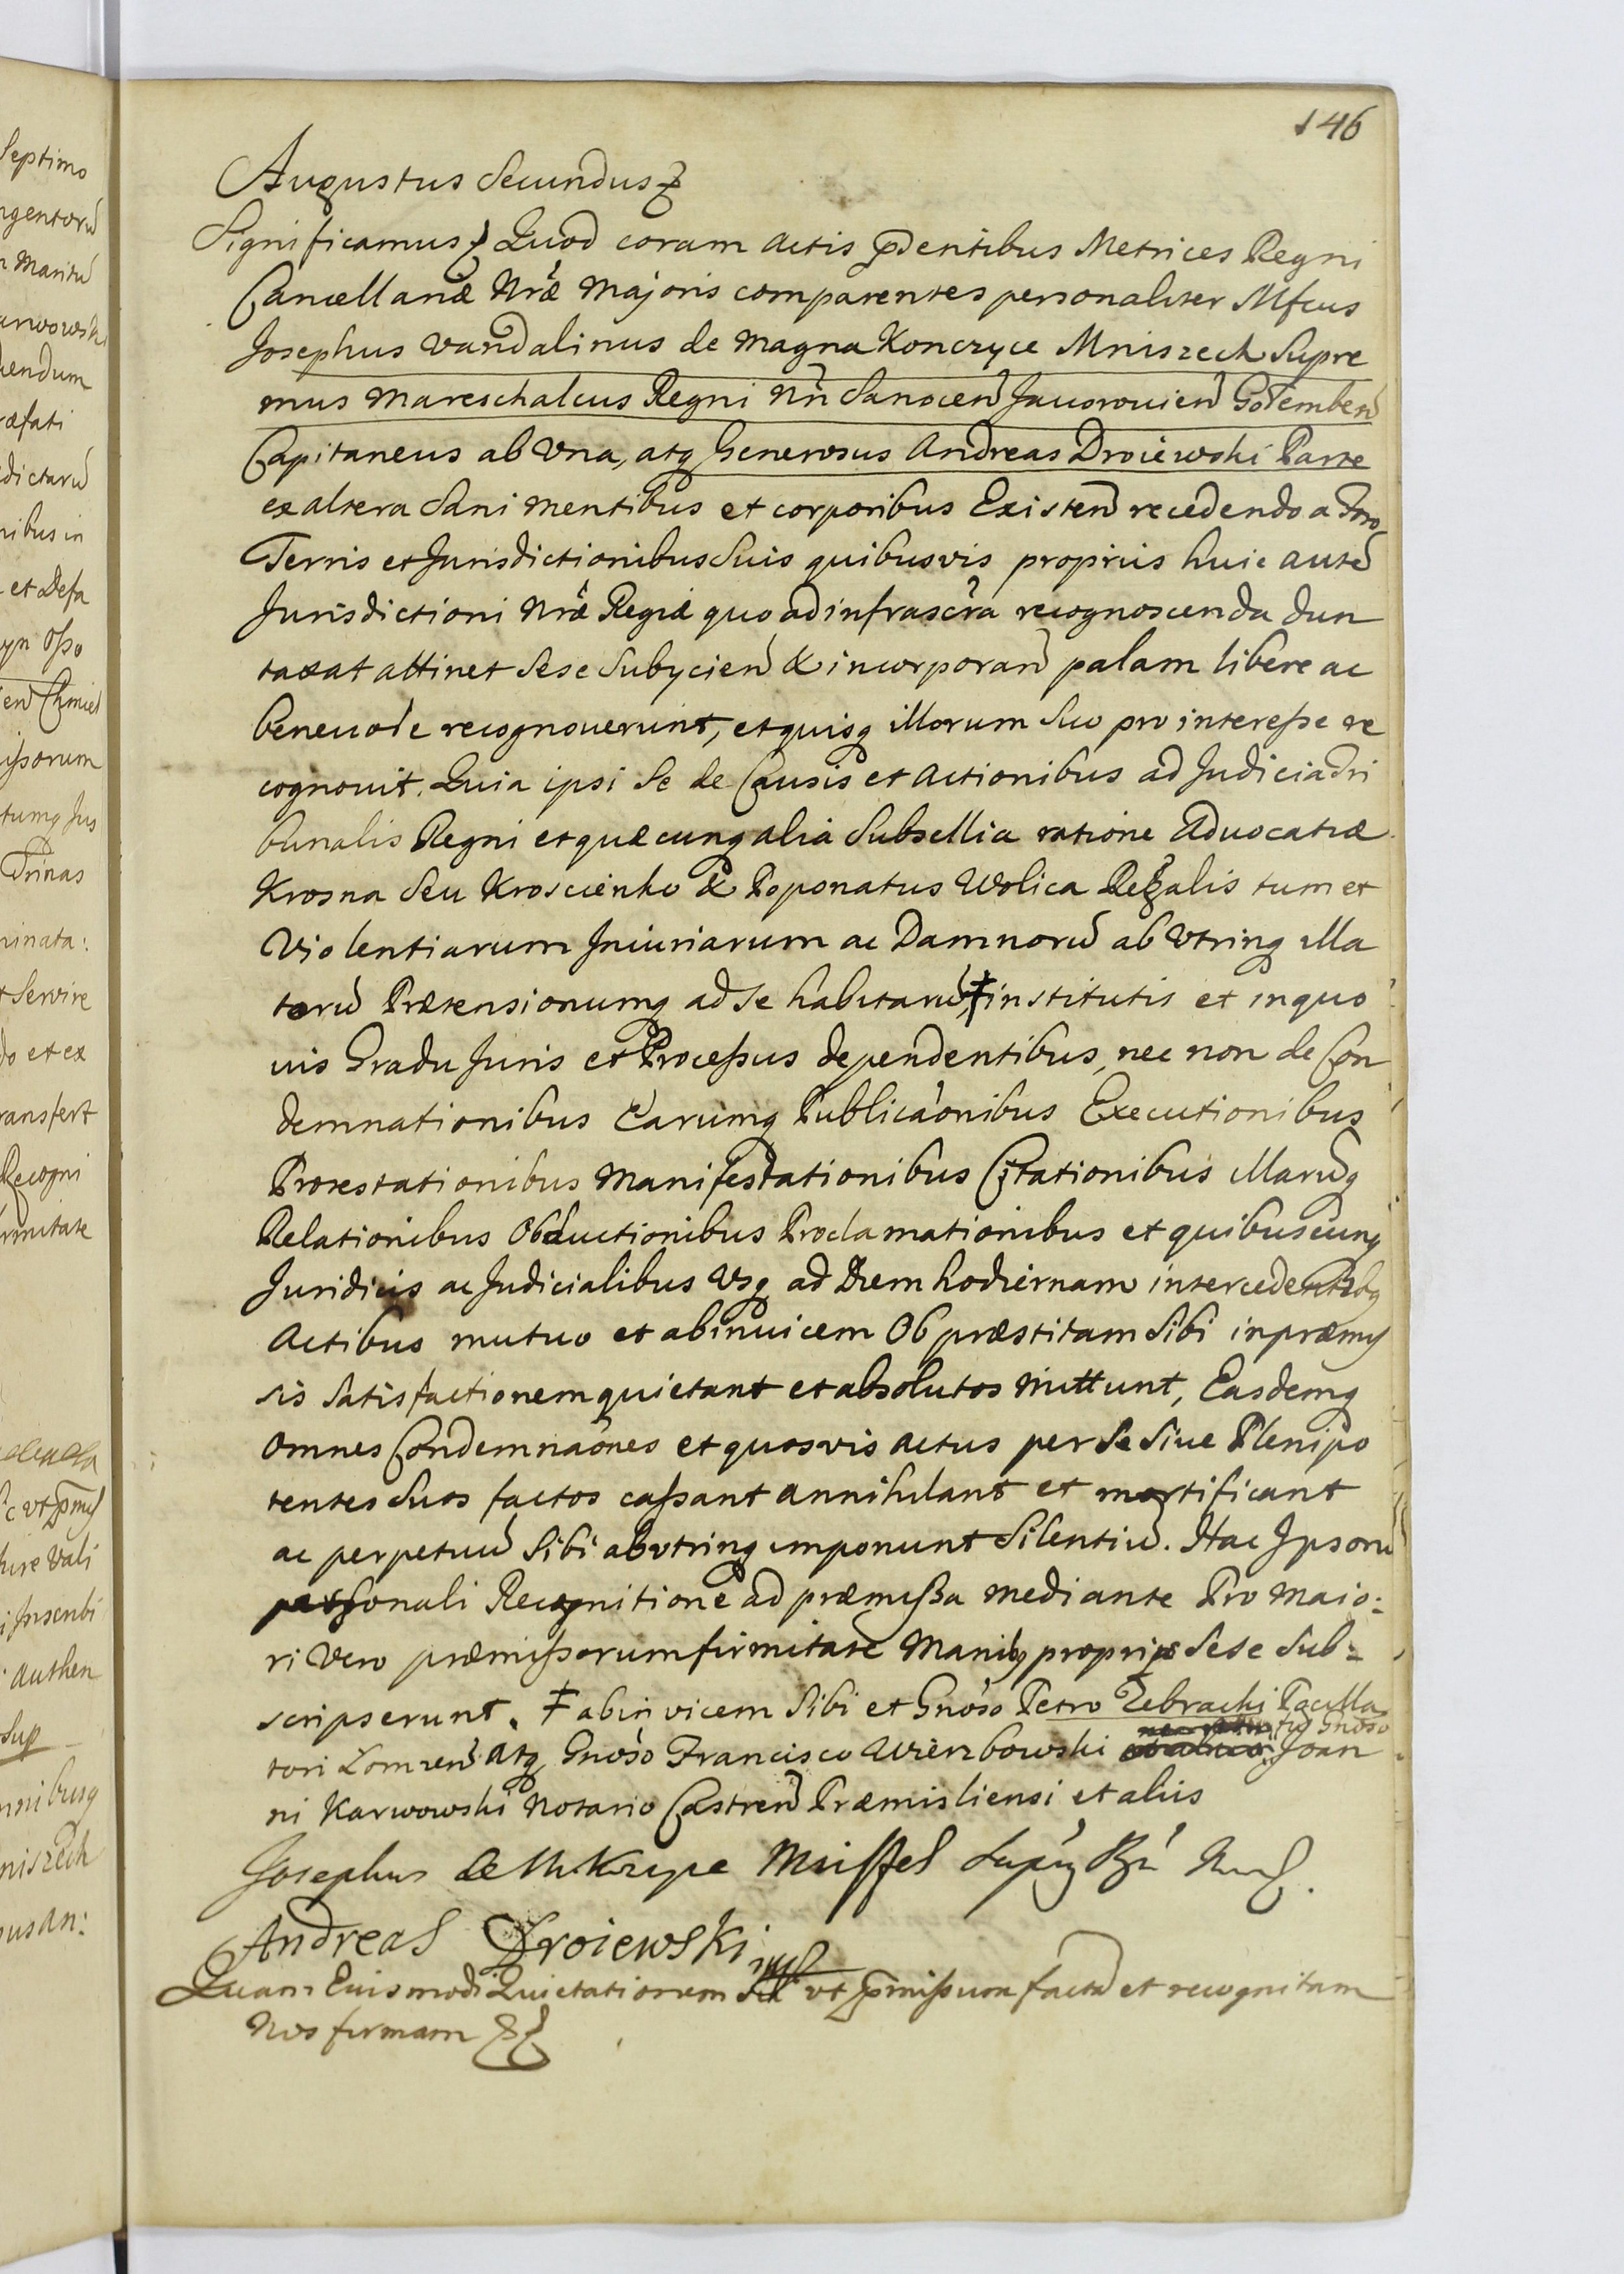 146
Augustus Secundus
Significamus Quod coram Actis pñdentibus Metrices Regni
Cancellariæ Nræ Majoris comparentes personaliter Mfcus
Josephus Vandalinus de Magna Konczyce Mniszech Supre
mus Mareschalcus Regni Nñ Sanocen Javorovien Golemben
Capitaneus ab Una, atq Generosus Andreas Droiewski Parte
ex altera Sani mentibus et corporibus Existen recedendo a Foro
Terris et Jurisdictionibus Suis quibusvis propriis huic aute
Jurisdictioni Nræ Regiæ quo ad infrascra recognoscenda dun
taxat attinet Sese Subycien & incorporan palam libere ac
benevole recognoverunt, et quisq illorum Suo pro interesse re
cognovit. Quia ipsi Se de Causis et Actionibus ad Judicia Tri
bunalis Regni et quæcunq alia Subsellia ratione Advocatiæ
Krosna Seu Kroscienko & Poponatus Wolica Regalis tum et
Violentiarum Iniuriarum ac Damnorū ab Vtrinq illa
torū Prætensionumq ad se habitarū ‡ institutis et in quo
vis Gradu Juris et Processus dependentibus, nec non de Con
demnationibus Earumq Publicaonibus Executionibus
Protestationibus Manifestationibus Citationibus illarūq
Relationibus Obductionibus Proclamationibus et quibuscunq
Juridicis ac Judicialibus Vsq ad Diem hodiernam intercedentibq
Actibus mutuo et abinvicem Ob præstitam Sibi in præmis
sis Satisfactionem quietant et absolutos mittunt, Easdemq
Omnes Condemnaones et quosvis actus per Se Sive Plenipo
tentes Suos factos cassant annihilant et mortificant
ac perpetuū Sibi abvtrinq imponunt Silentiū. Hac Ipsorū
personali Recognitione ad præmissa mediante Pro Maio:
ri Vero præmissorum firmitate Manibq propriis Sese Sub:
scripserunt. ‡ abinvicem Sibi et Gnoso Petro Zebracki Pocilla
tori Lomzen Atq Gnoso Francisco Wierzbowski tum Gnoso Joan
ni Karwowski Notario Castren Præmisliensi et aliis
Josephus de M Kzyce Mnissek
Andreas Droiewski mp
Quam Eiusmodi Quietationem Sic vt pmissum facta et recognitam
Nos firmam